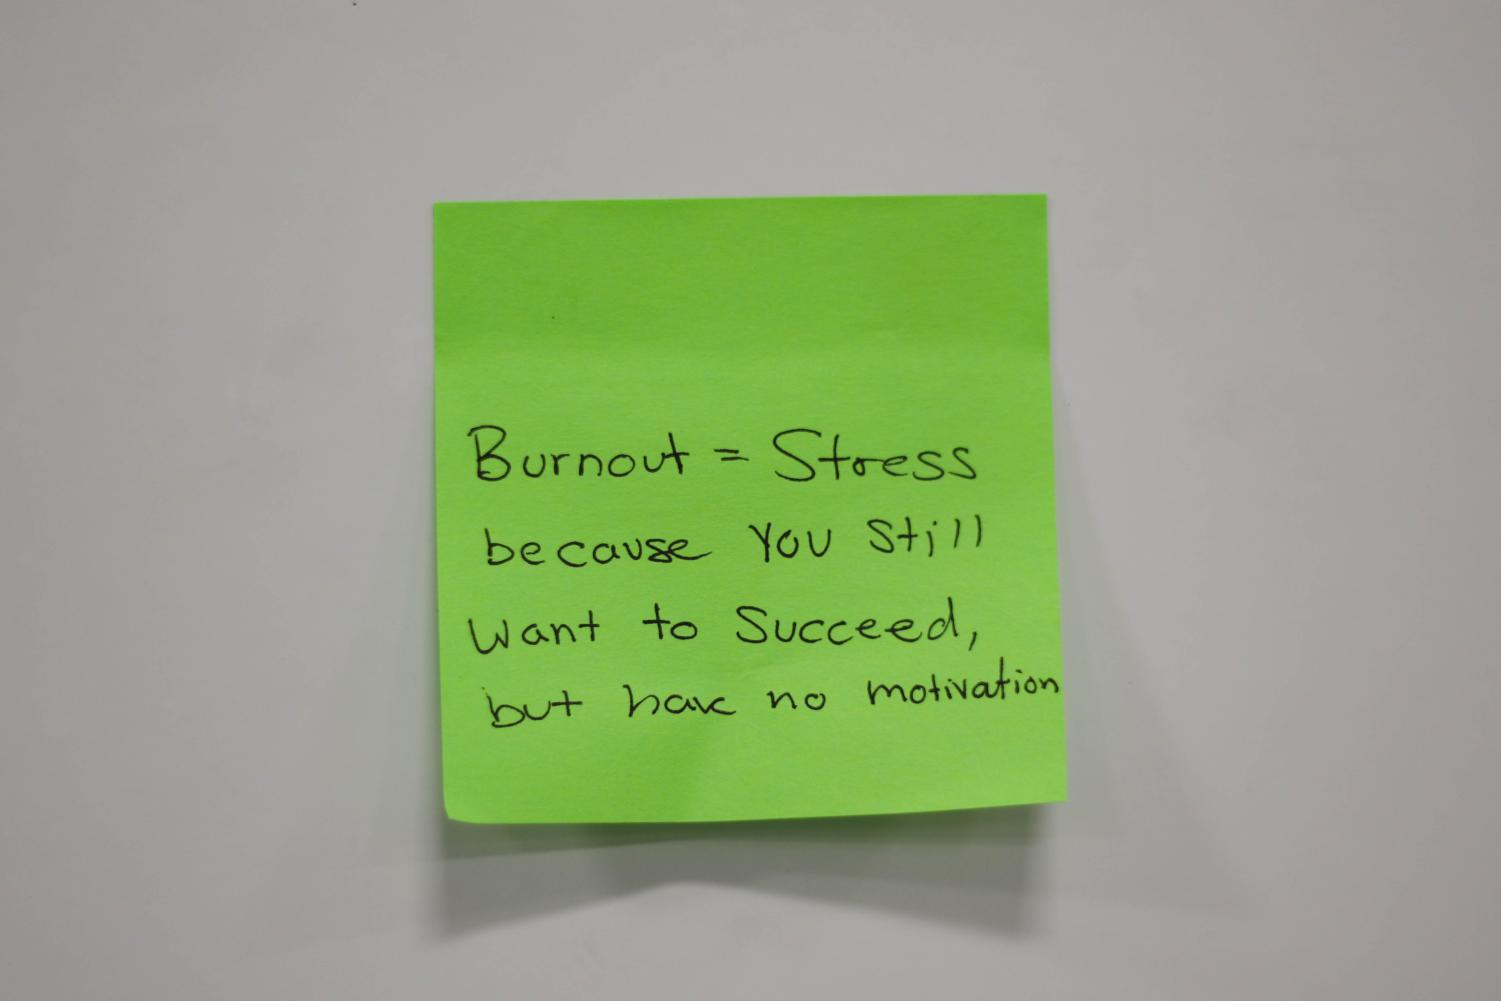 Burnout = Stress
because You still
want to Succeed,
but have no motivation